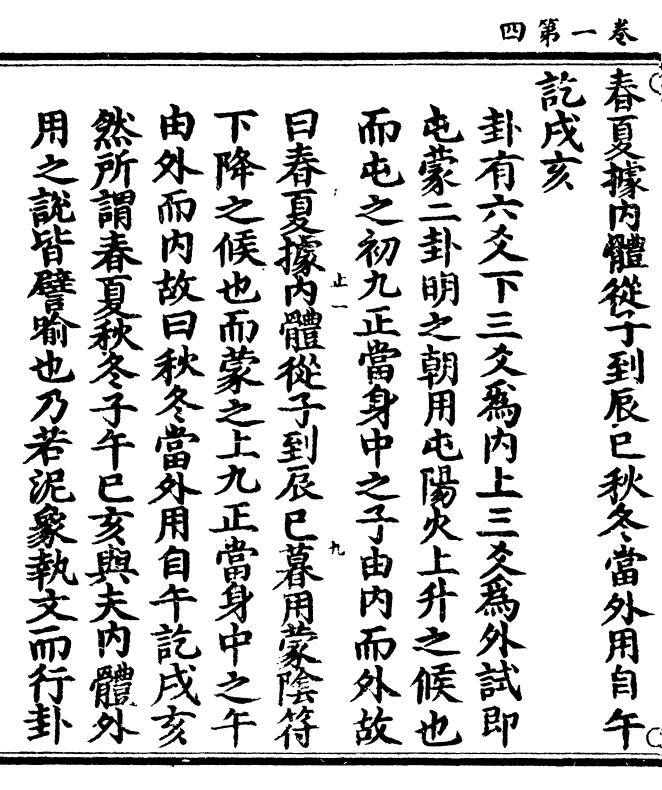 卷一第四
春夏據內體從子到辰巳秋冬當外用自午
訖戌亥
卦有六爻下三爻爲內上三爻爲外試即
屯蒙二卦明之朝用屯陽火上升之候也
而屯之初九正當身中之子由內而外故
曰春夏據內體從子到辰巳暮用蒙陰符
下降之候也而蒙之上九正當身中之午
由外而內故曰秋冬當外用自午訖戌亥
然所謂春夏秋冬子午巳亥與夫內體外
用之說皆譬喻也乃若泥象執文而行卦
止一
九